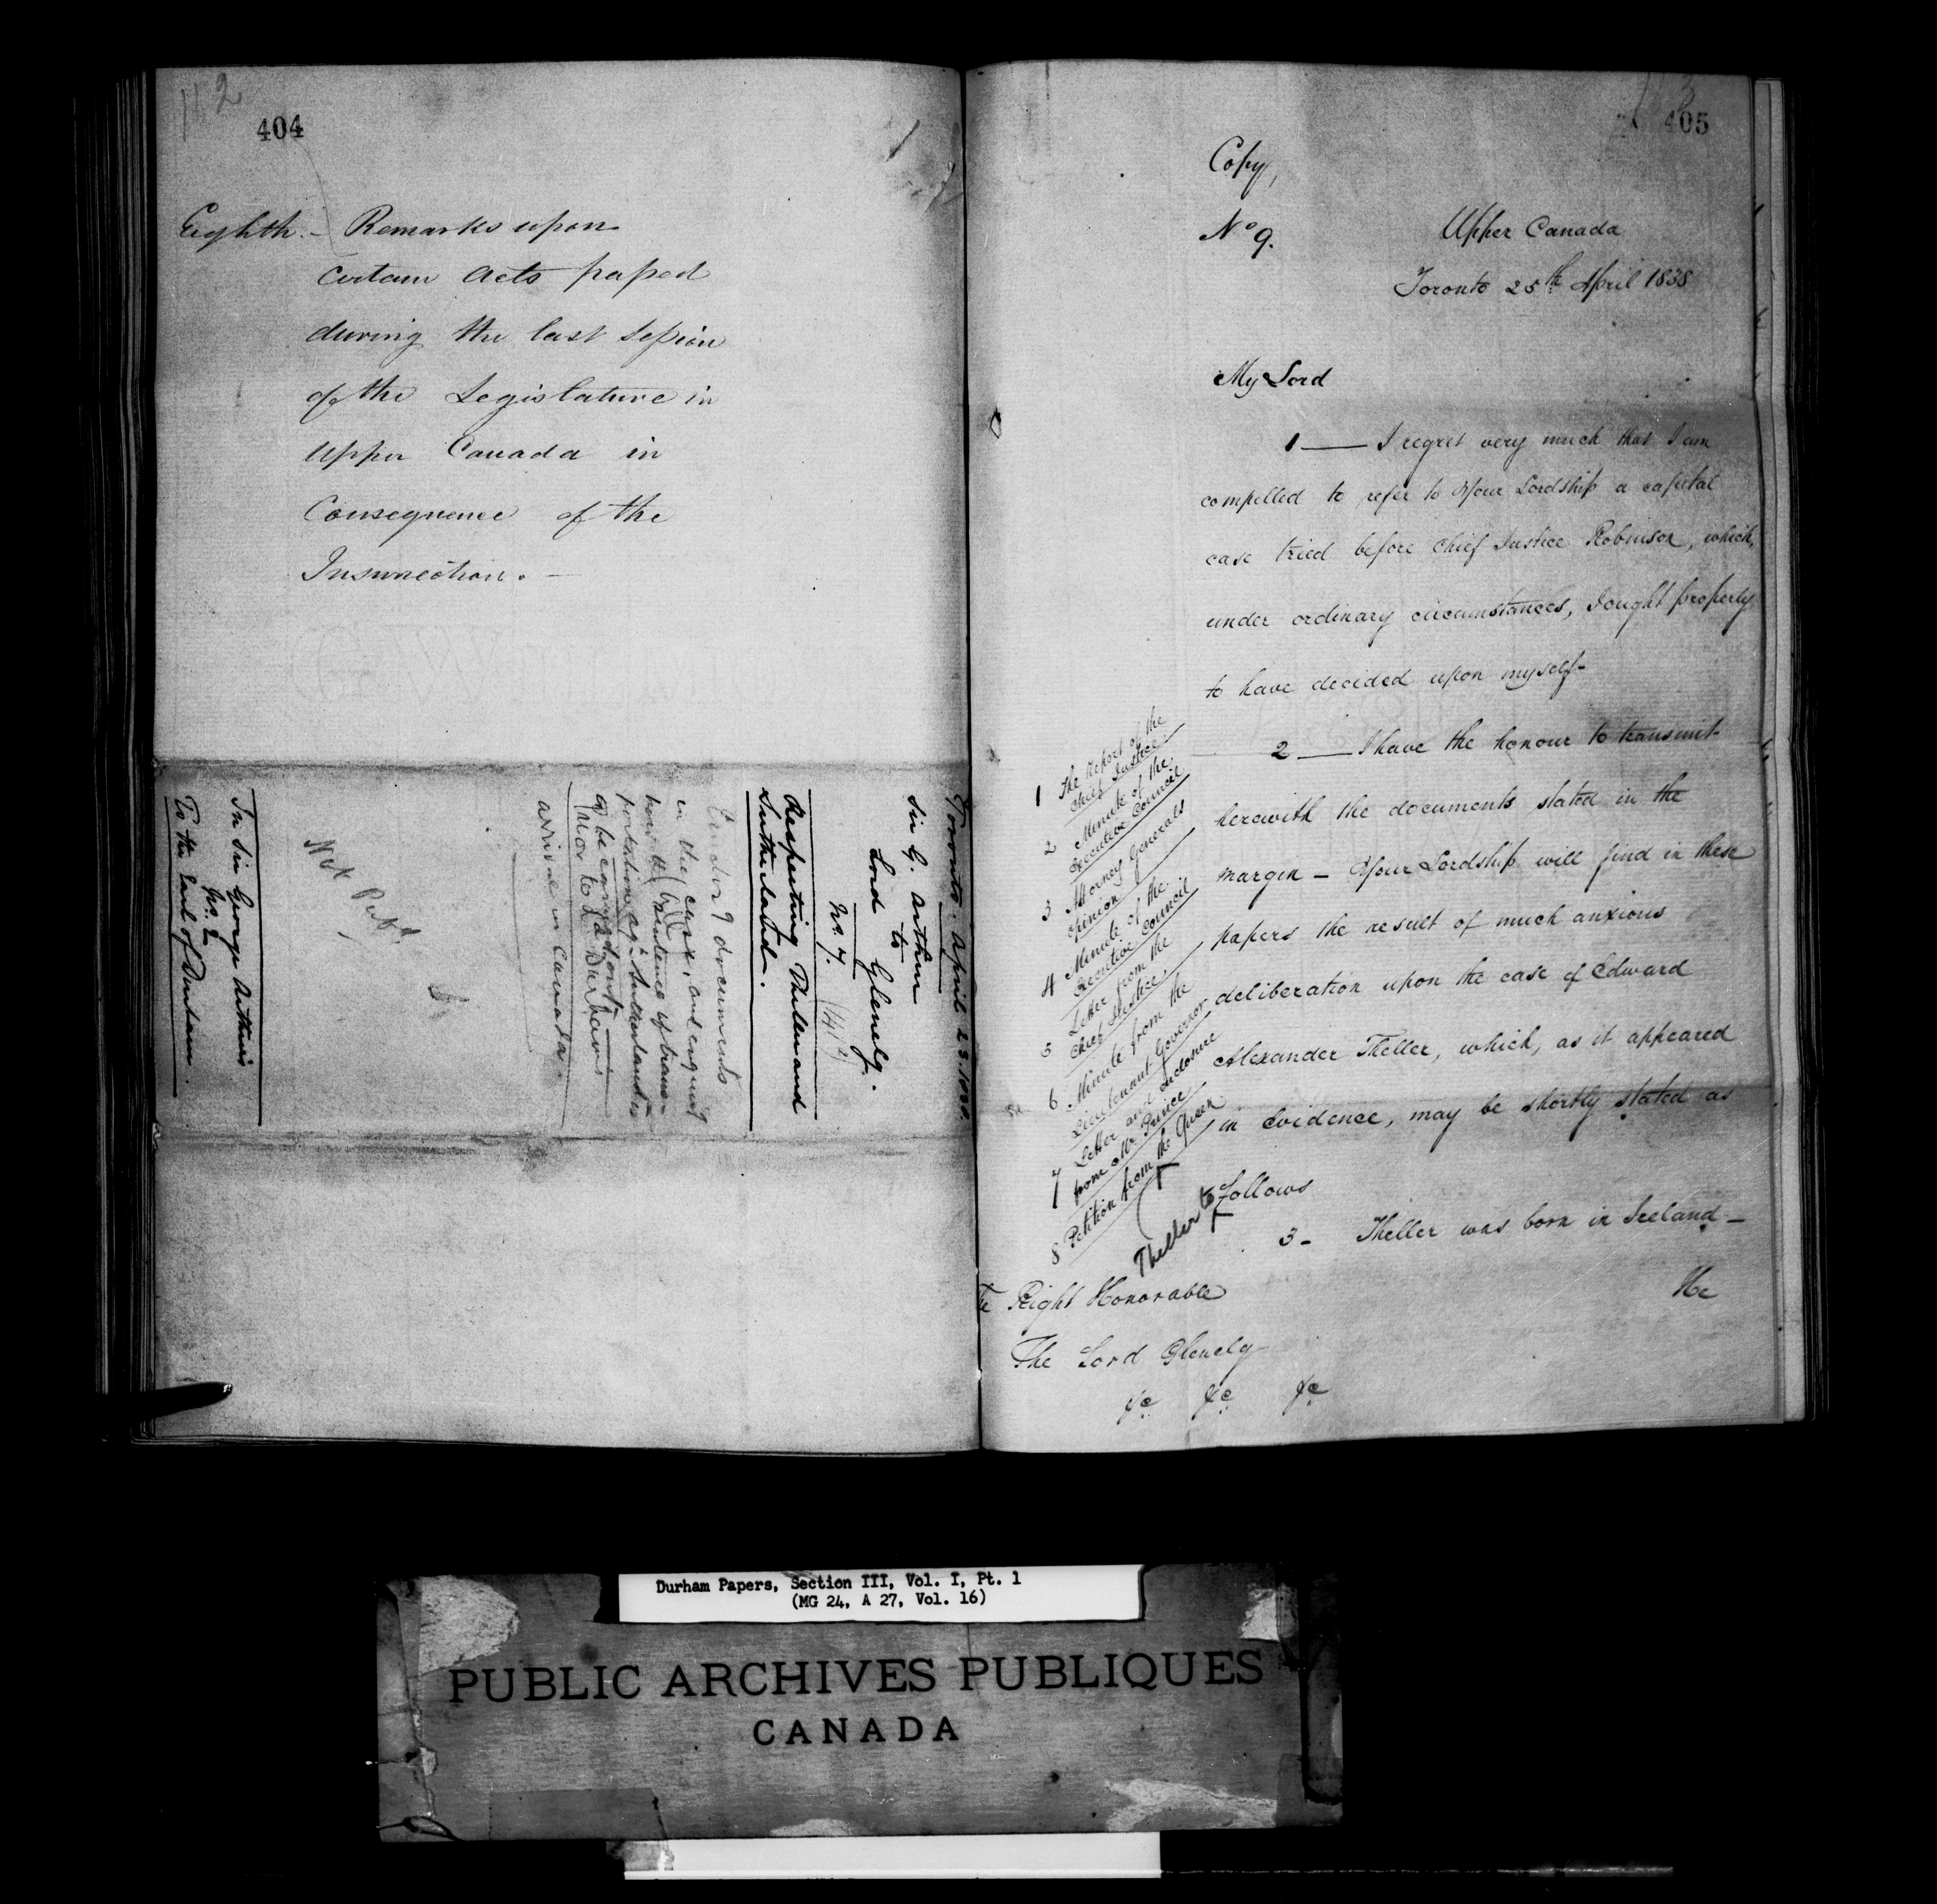 112
404
Eighth. – Remarks upon
certain acts passed
during the last Session
of the Legislature in
Upper Canada in
Consequence of the
Insurrection. –
Toronto. April 25. 1838.
Sir G. Arthur
to
Lord Glenelg.
No. 9.
Respecting Theller and
Sutherland.
documents
in the case, and enquiring
how the sentence of trans-
portation agst Sutherland is
to be carried out
Prior to Ld Durham's
arrival in Canada.
Not Pub.
In Sir George Arthur's
No. 2
To the Earl of Durham.
405
Copy,
No 9.
Upper Canada
Toronto 25th April 1838
My Lord
1 — I regret very much that I am
compelled to refer to Your Lordship a capital
case tried before Chief Justice Robinson, which,
under ordinary circumstances, I ought properly
to have decided upon myself–
2 — I have the honour to transmit
herewith the documents stated in the
margin – Your Lordship will find in these
papers the result of much anxious
deliberation upon the case of Edward
Alexander Theller, which, as it appeared
in Evidence, may be shortly stated as
follows
1 The Report of the
Chief Justice.
2 Minute of the
Executive Council
3 Attorney Generals
opinion
4 Minute of the
Executive Council
5 Letter from the
Chief Justice,
6 Minute from the
Lieutenant Governor
7 Letter and Enclosure
from Mr. Prince
8 Petition from the Queen
Theller to
3 – Theller was born in Ireland –
He
The Right Honorable
The Lord Glenelg
&c &c &c
Durham Papers, Section III, Vol. I, Pt. 1
(MG 24, A 27, Vol. 16)
PUBLIC ARCHIVES PUBLIQUES
CANADA